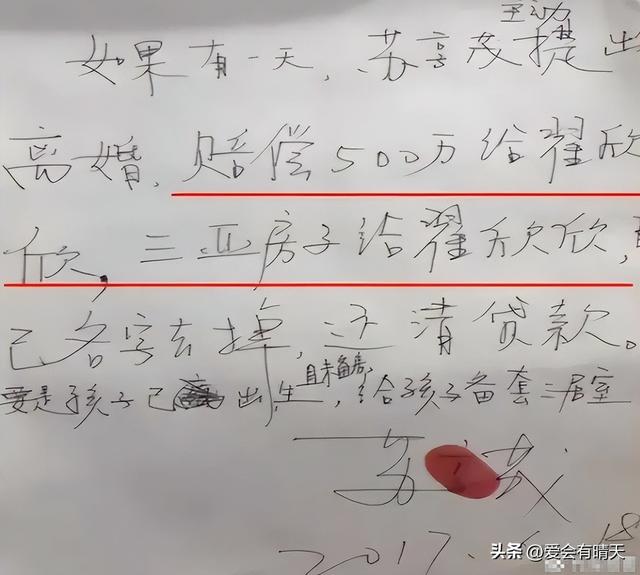 主动
如果有一天,苏享茂提出
离婚,赔偿500万给翟欣
欣,三亚房子给翟欣欣,
己名字去掉,还清贷款。
且未备房,
要是孩子已出生,给孩子备套三居室
苏享茂
2017. 18
头条 @爱会有晴天